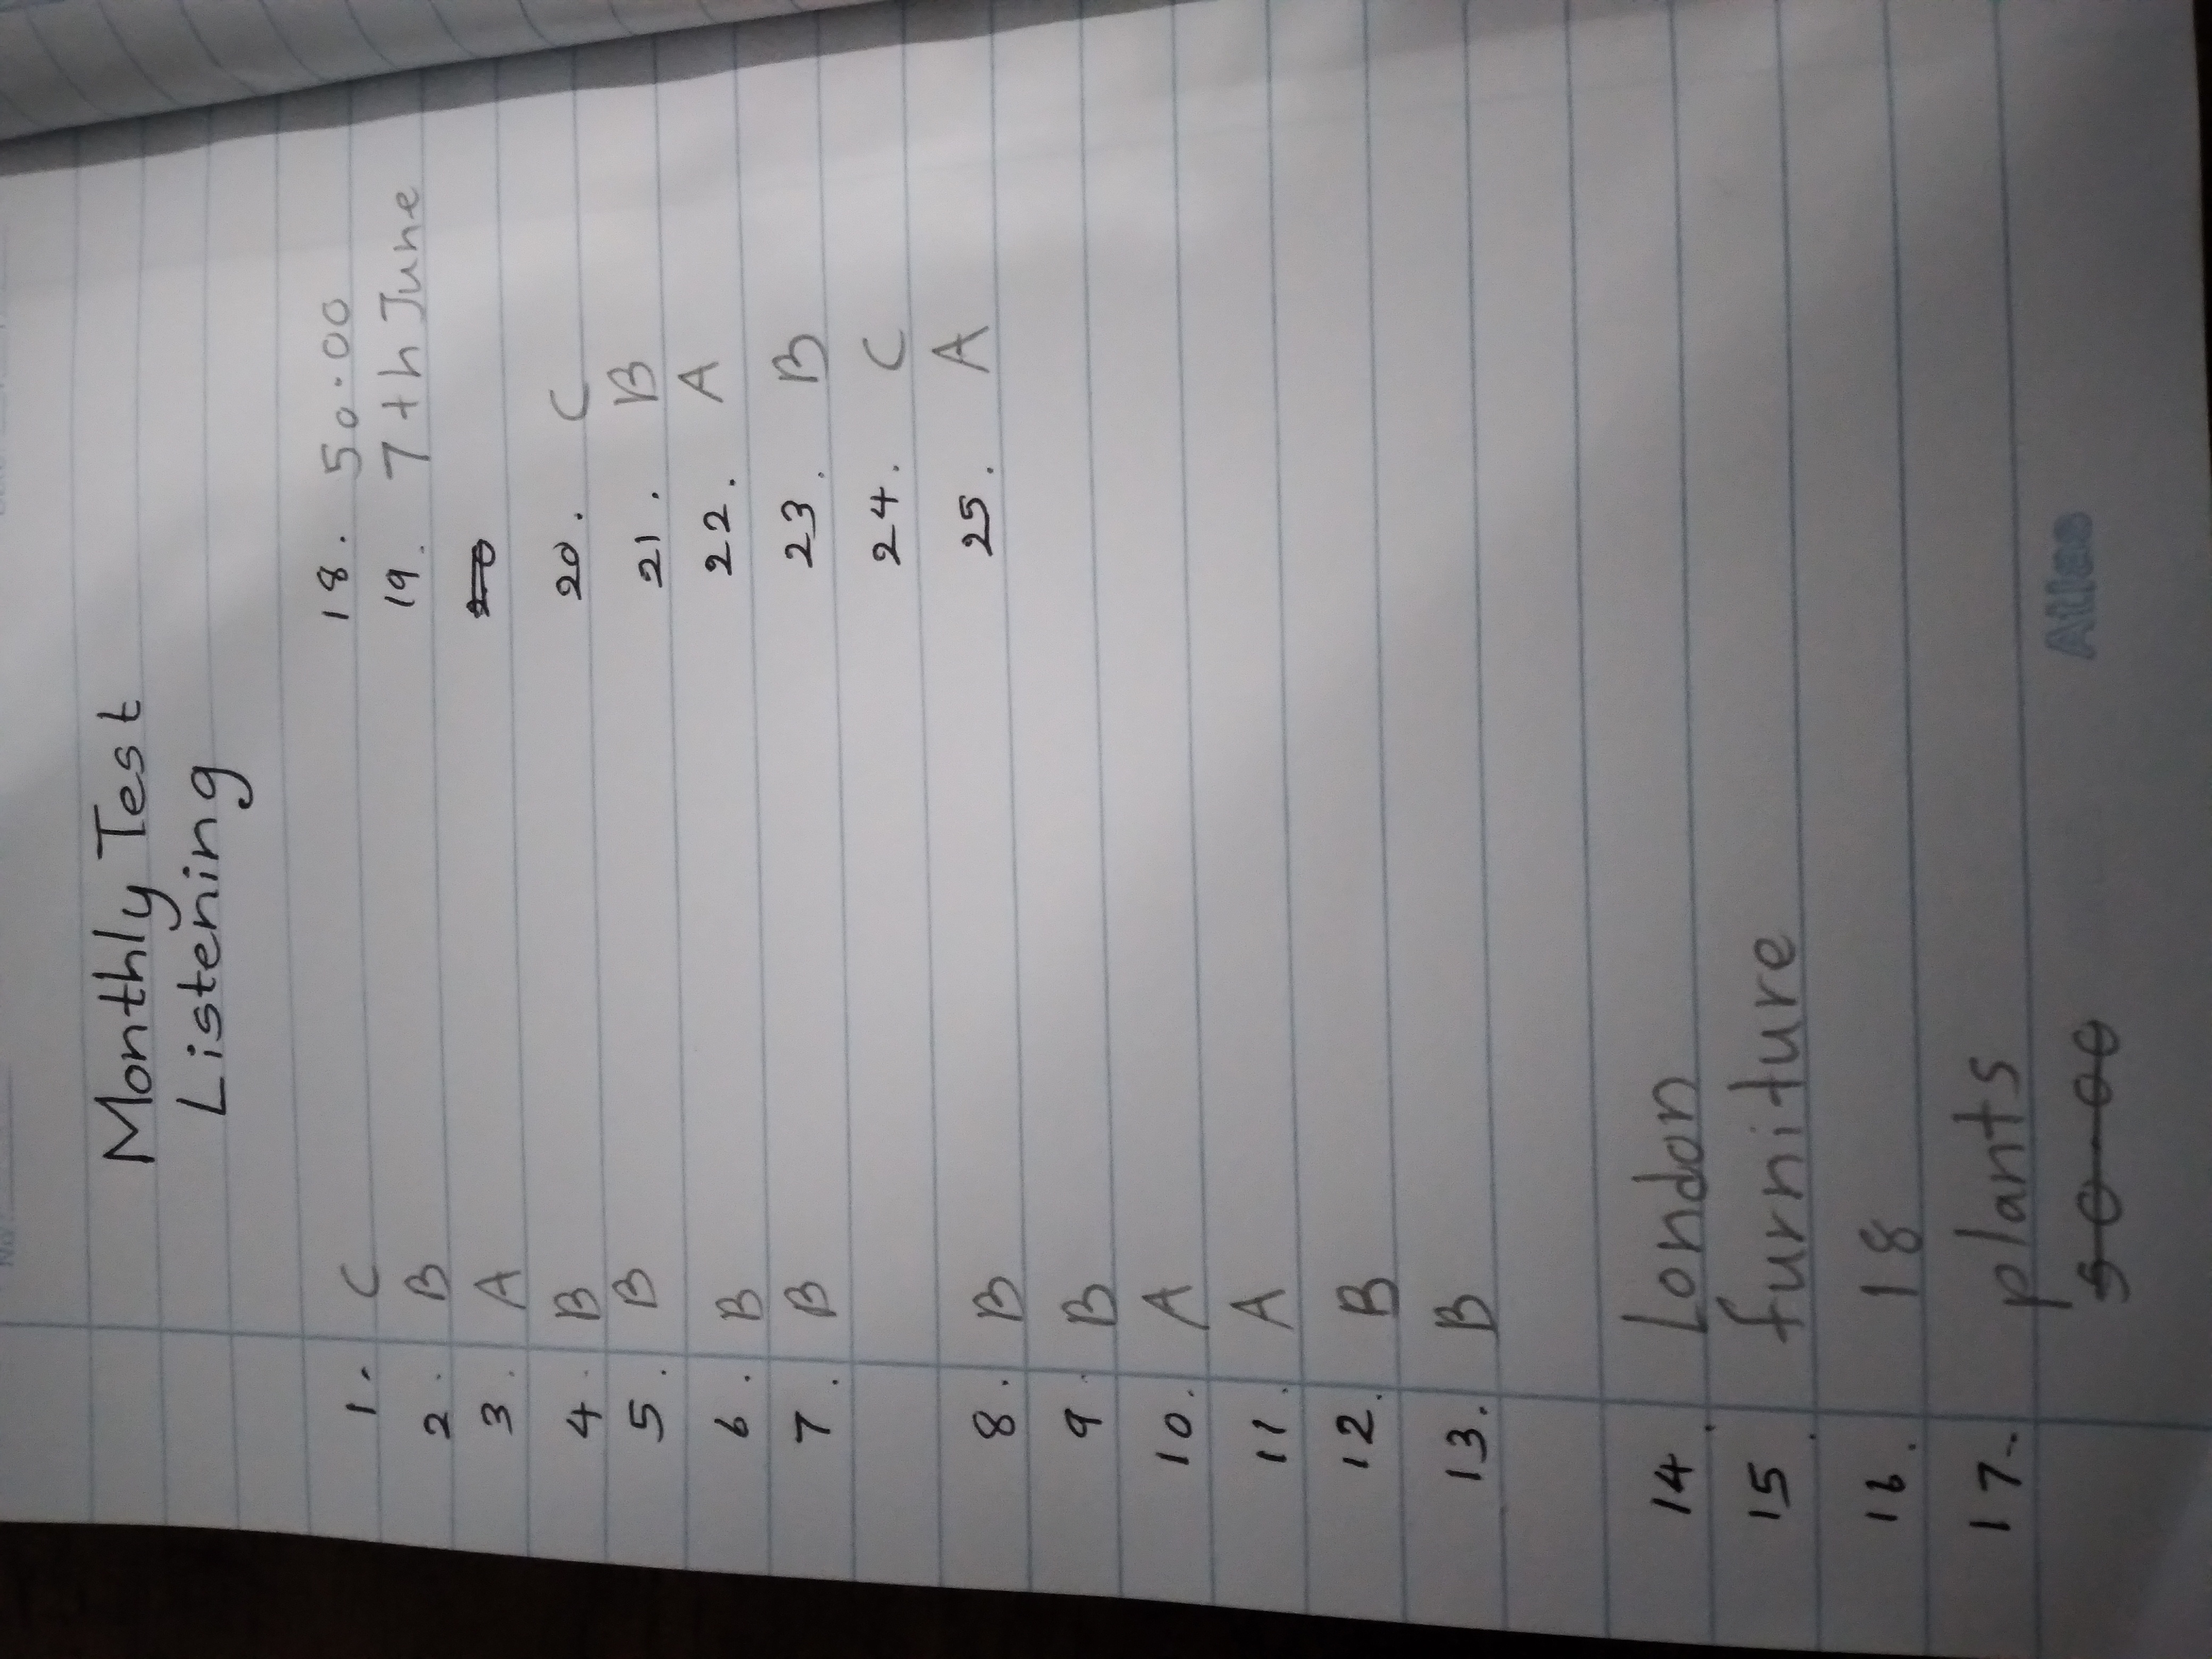 Monthly Test
Listening
1. C
2. B
3. A
4. B
5. B
6. B
7. B
8. B
9. B
10. A
11. A
12. B
13. B
14. London
15. furniture
16. 18
17. plants
18. 50.00
19. 7th June
20. C
21. B
22. A
23. B
24. C
25. A
Atlas